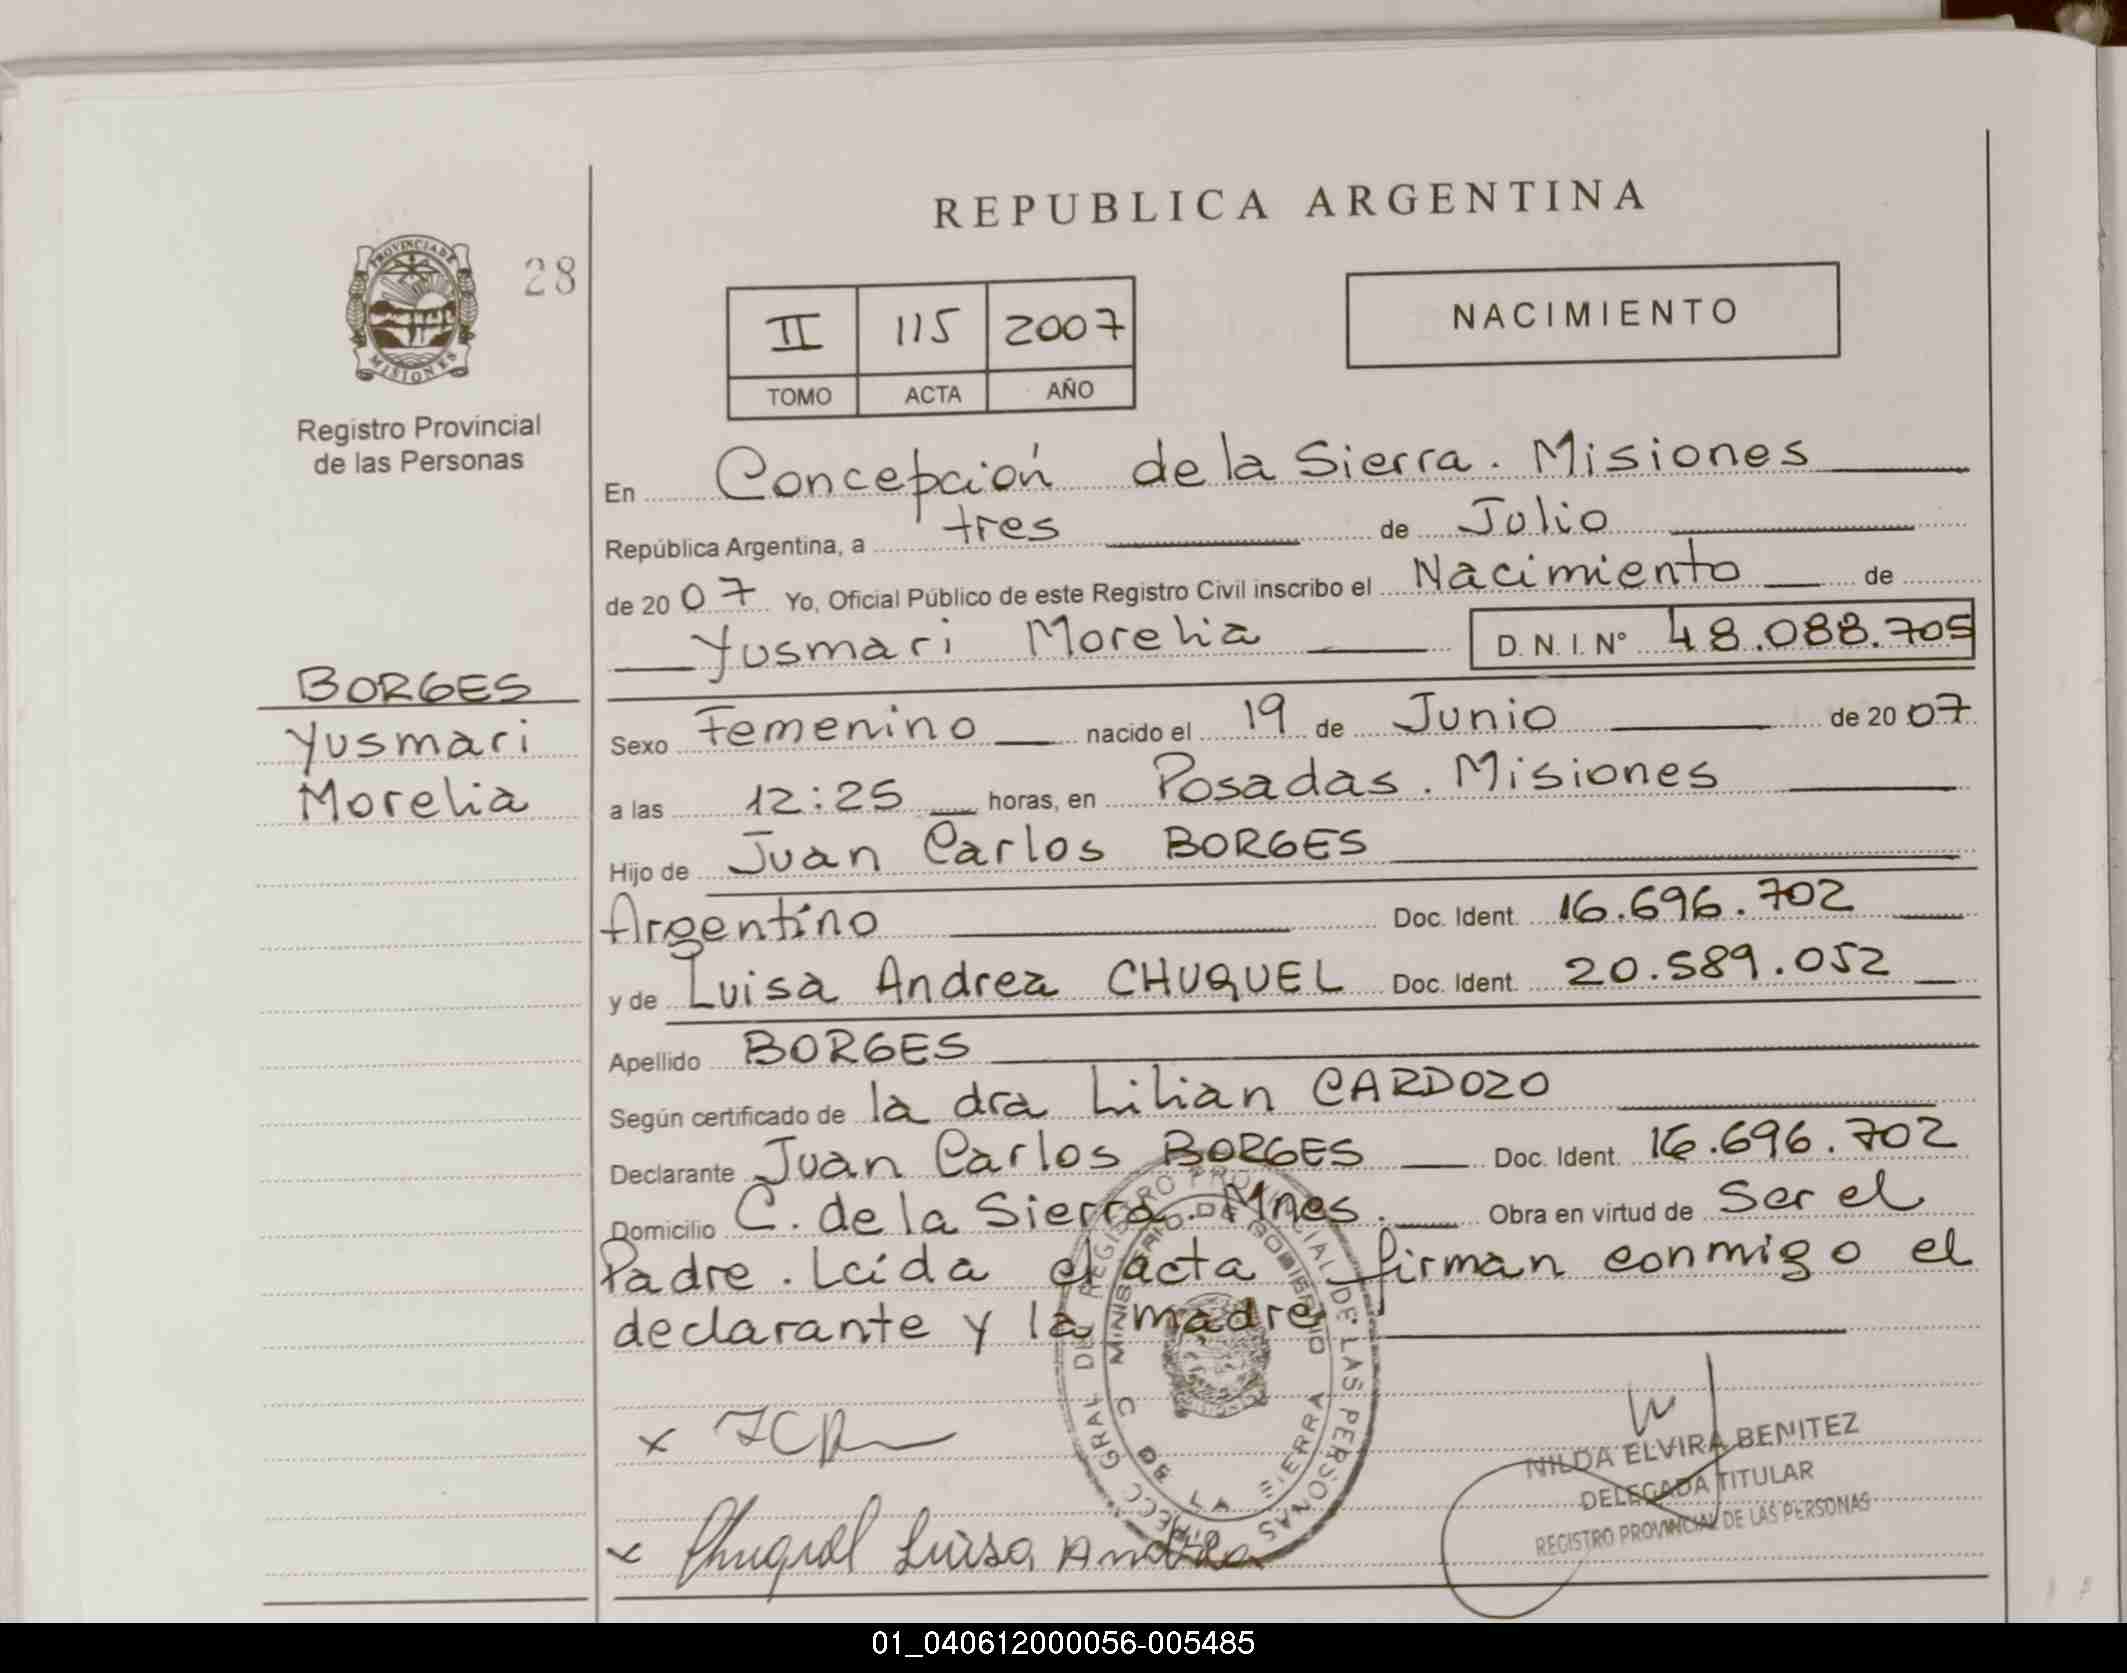 REPUBLICA ARGENTINA
PROVINCIA DE MISIONES
28
II 115 2007
TOMO ACTA AÑO
NACIMIENTO
Registro Provincial
de las Personas
En Concepción de la Sierra. Misiones
República Argentina, a tres de Julio
de 2007 Yo, Oficial Público de este Registro Civil inscribo el Nacimiento de
Yusmari Morelia D.N.I.Nº 48.088.705
BORGES
Yusmari
Morelia
Sexo Femenino nacido el 19 de Junio de 2007
a las 12:25 horas, en Posadas. Misiones
Hijo de Juan Carlos BORGES
Argentino Doc. Ident. 16.696.702
y de Luisa Andrea CHUQUEL Doc. Ident. 20.589.052
Apellido BORGES
Según certificado de la dra Lilian CARDOZO
Declarante Juan Carlos BORGES Doc. Ident. 16.696.702
Domicilio C. de la Sierra. Mnes. Obra en virtud de Ser el
Padre. Leída el acta firman conmigo el
declarante y la madre
REGISTRO PROVINCIAL DE LAS PERSONAS
MINISTERIO DE GOBIERNO
x
x Chuquel Luisa Andrea
NILDA ELVIRA BENITEZ
DELEGADA TITULAR
REGISTRO PROVINCIAL DE LAS PERSONAS
01_040612000056-005485